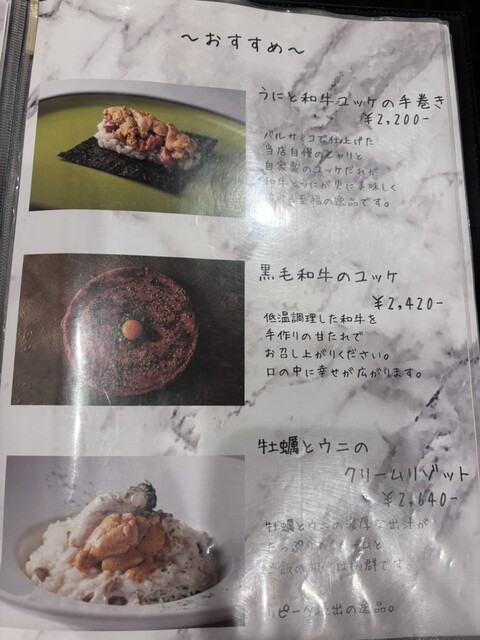 ～おすすめ～
うにと和牛ユッケの手巻き
¥2,200-
バルサミコで仕上げた
当店自慢のシャリと
自家製のユッケだれが
和牛とうにが更に美味しく
至福の逸品です。
黒毛和牛のユッケ
¥2,420-
低温調理した和牛を
手作りの甘だれで
お召し上がりください。
口の中に幸せが広がります。
牡蠣とウニの
クリームリゾット
¥2,640-
牡蠣とウニの濃厚な出汁が
リピータ 出の逸品。